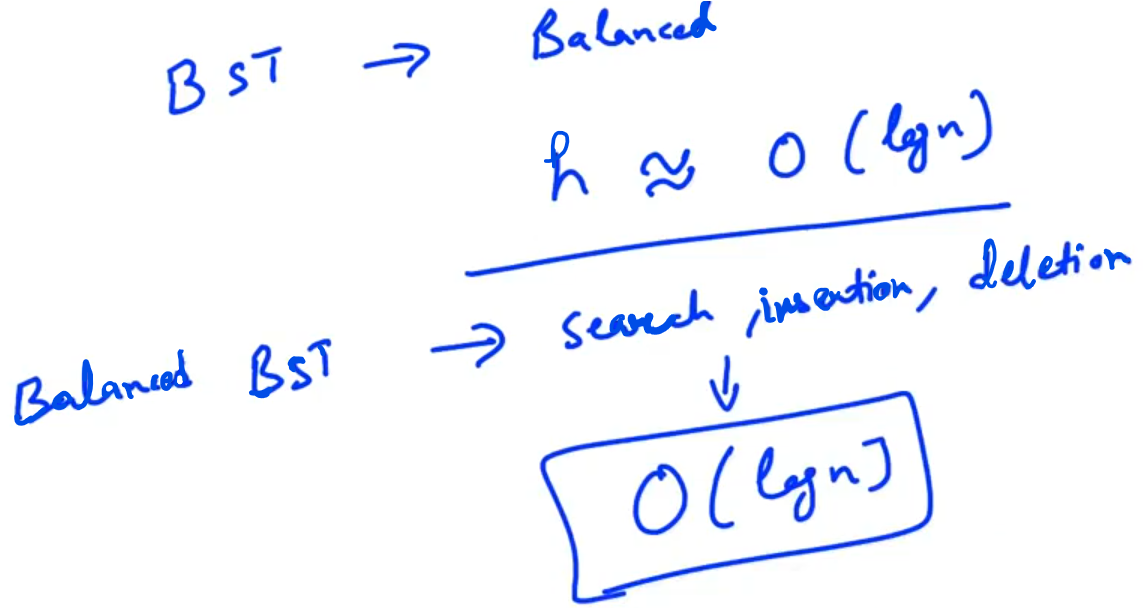 BST → Balanced
h ≈ O (log n)
Balanced BST → search, insertion, deletion
↓
O (log n]